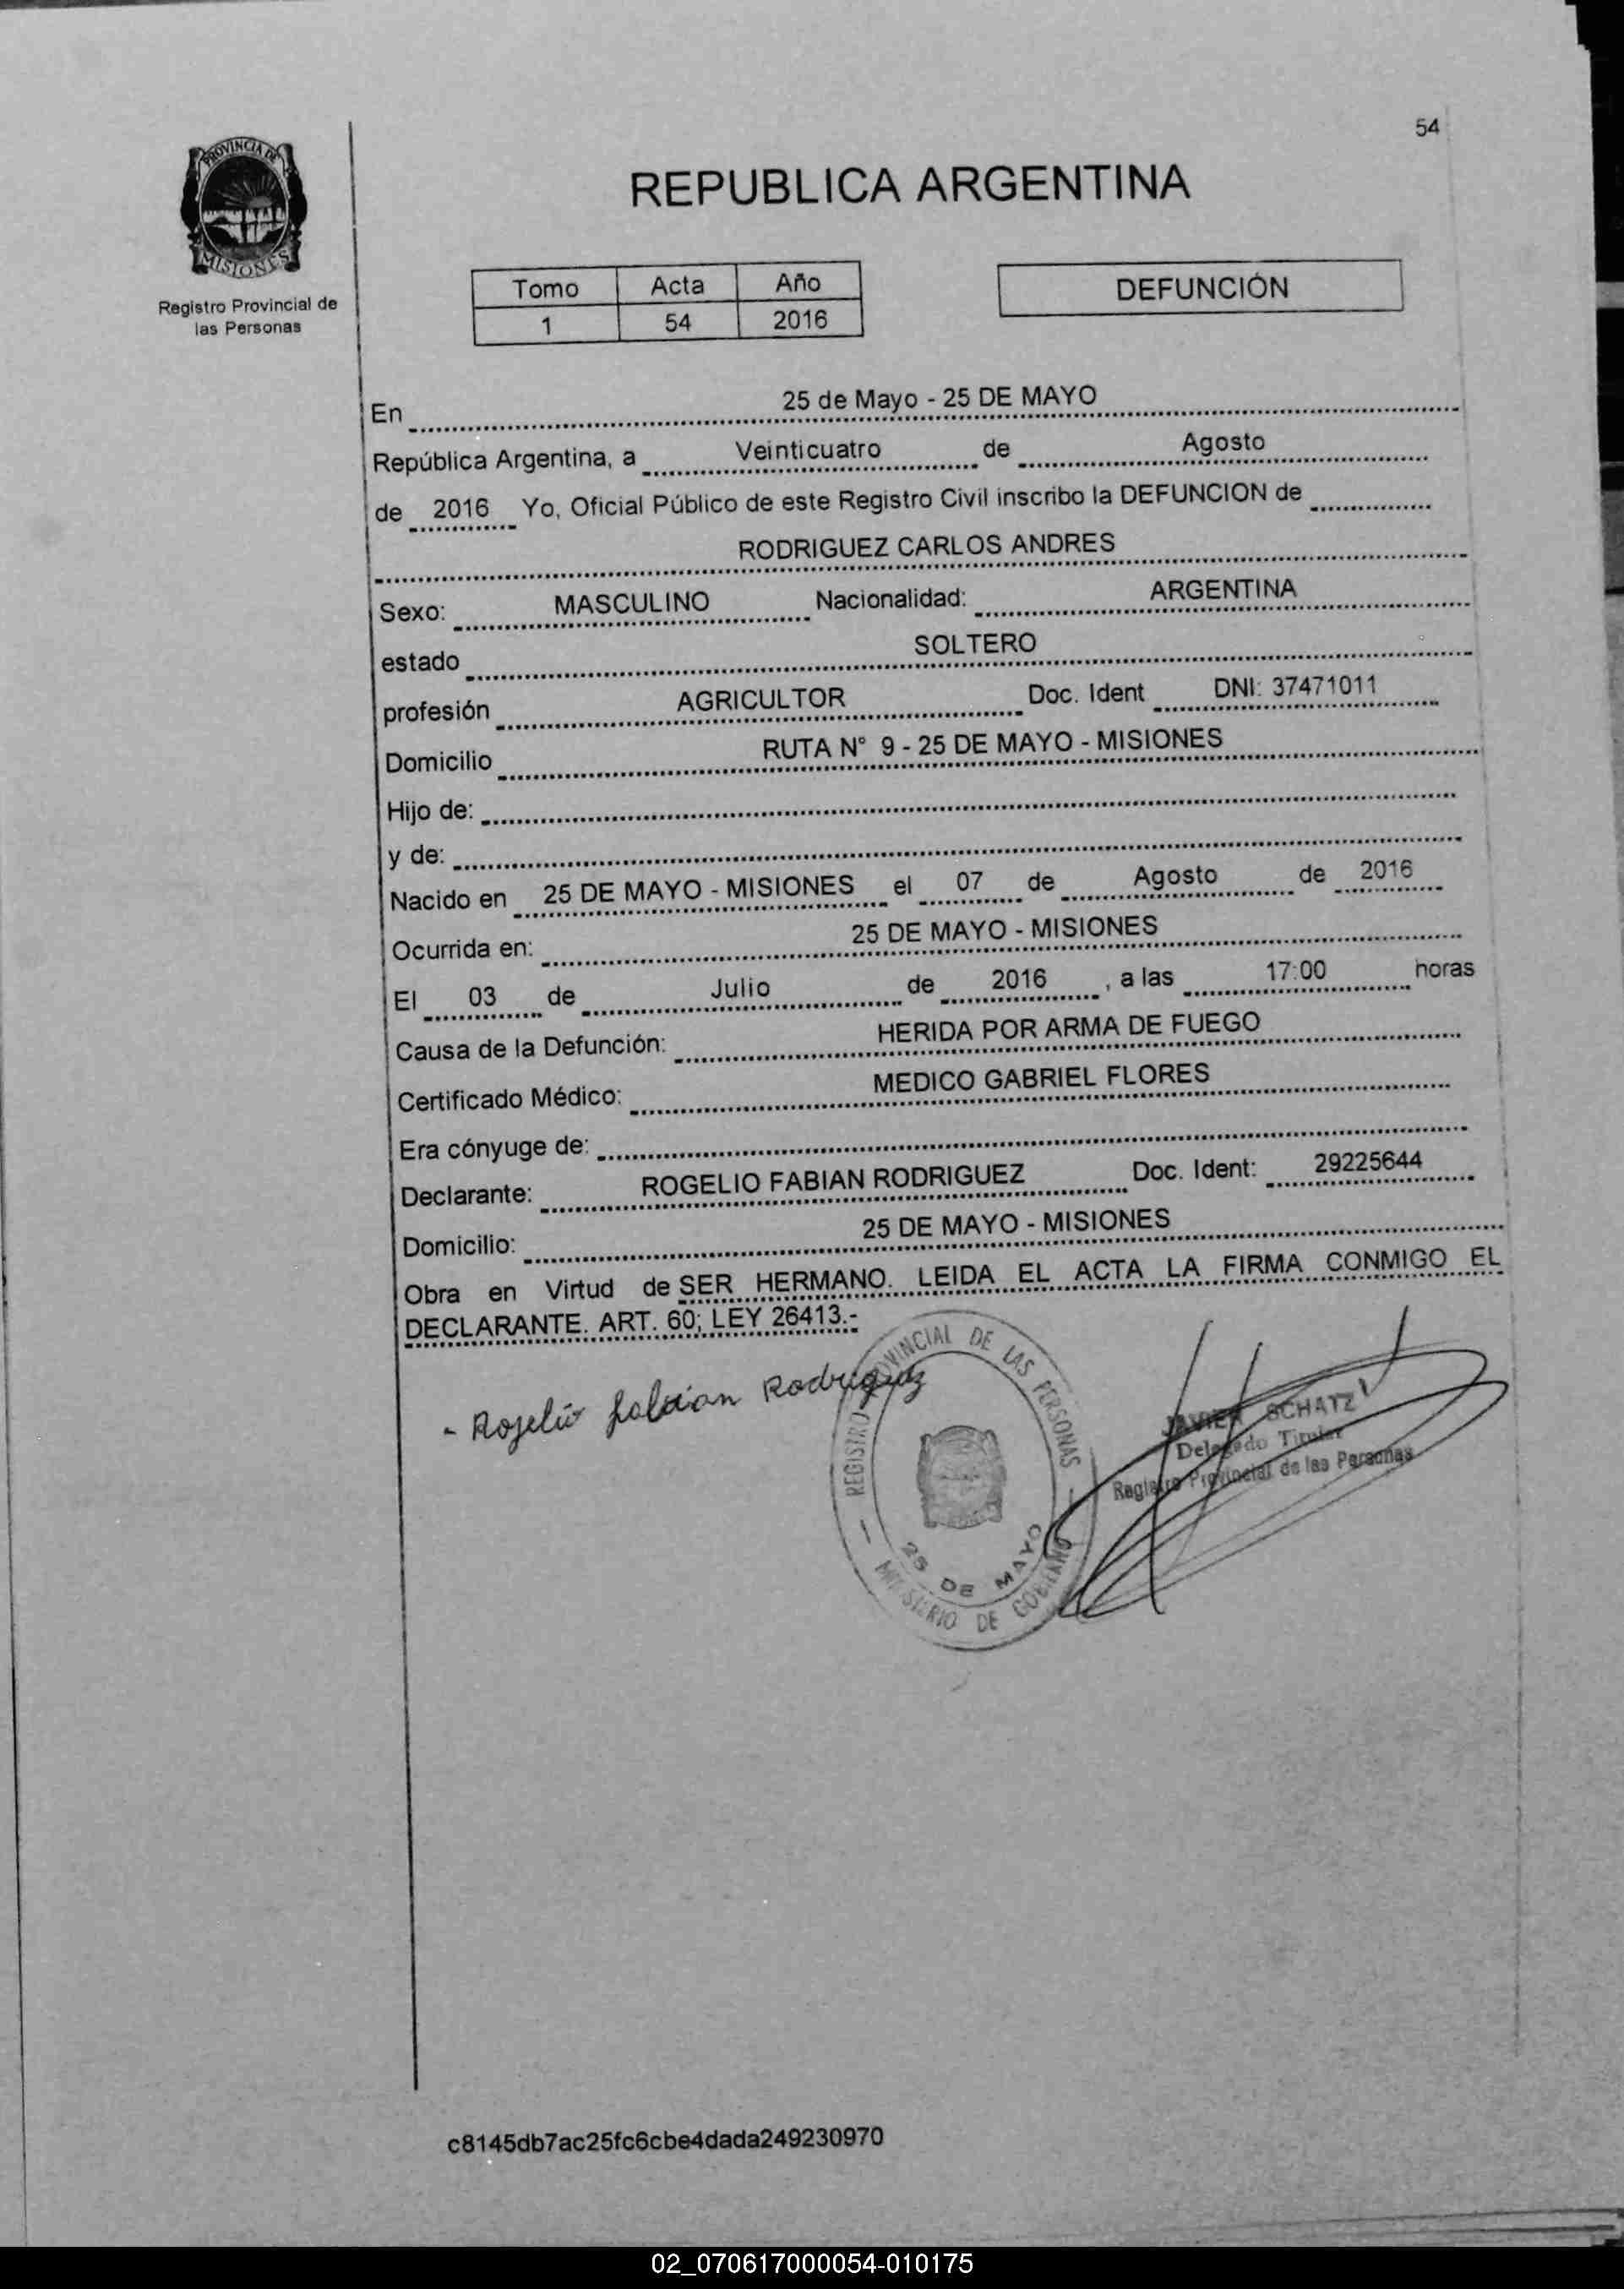 54
PROVINCIA DE
MISIONES
Registro Provincial de
las Personas
REPUBLICA ARGENTINA
Tomo Acta Año
1 54 2016
DEFUNCIÓN
En 25 de Mayo - 25 DE MAYO
República Argentina, a Veinticuatro de Agosto
de 2016 Yo, Oficial Público de este Registro Civil inscribo la DEFUNCION de
RODRIGUEZ CARLOS ANDRES
Sexo: MASCULINO Nacionalidad: ARGENTINA
estado SOLTERO
profesión AGRICULTOR Doc. Ident DNI: 37471011
Domicilio RUTA N° 9 - 25 DE MAYO - MISIONES
Hijo de:
y de:
Nacido en 25 DE MAYO - MISIONES el 07 de Agosto de 2016
Ocurrida en: 25 DE MAYO - MISIONES
El 03 de Julio de 2016 , a las 17:00 horas
Causa de la Defunción: HERIDA POR ARMA DE FUEGO
Certificado Médico: MEDICO GABRIEL FLORES
Era cónyuge de:
Declarante: ROGELIO FABIAN RODRIGUEZ Doc. Ident: 29225644
Domicilio: 25 DE MAYO - MISIONES
Obra en Virtud de SER HERMANO. LEIDA EL ACTA LA FIRMA CONMIGO EL
DECLARANTE. ART. 60; LEY 26413.-
- Rogelio fabian Rodriguez
REGISTRO PROVINCIAL DE LAS PERSONAS
25 DE MAYO
MINISTERIO DE GOBIERNO
JAVIER SCHATZ
Delegado Titular
Registro Provincial de las Personas
c8145db7ac25fc6cbe4dada249230970
02_070617000054-010175